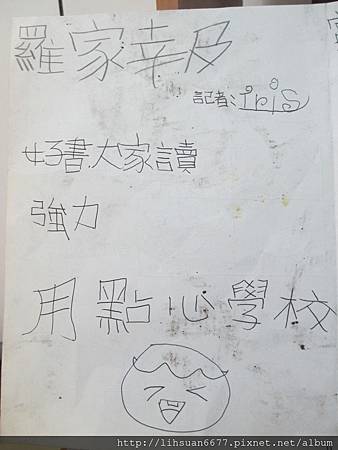 羅家幸及
記者:iris
好書大家讀
強力
用點心學校
http://lihsuan6677.pixnet.net/album